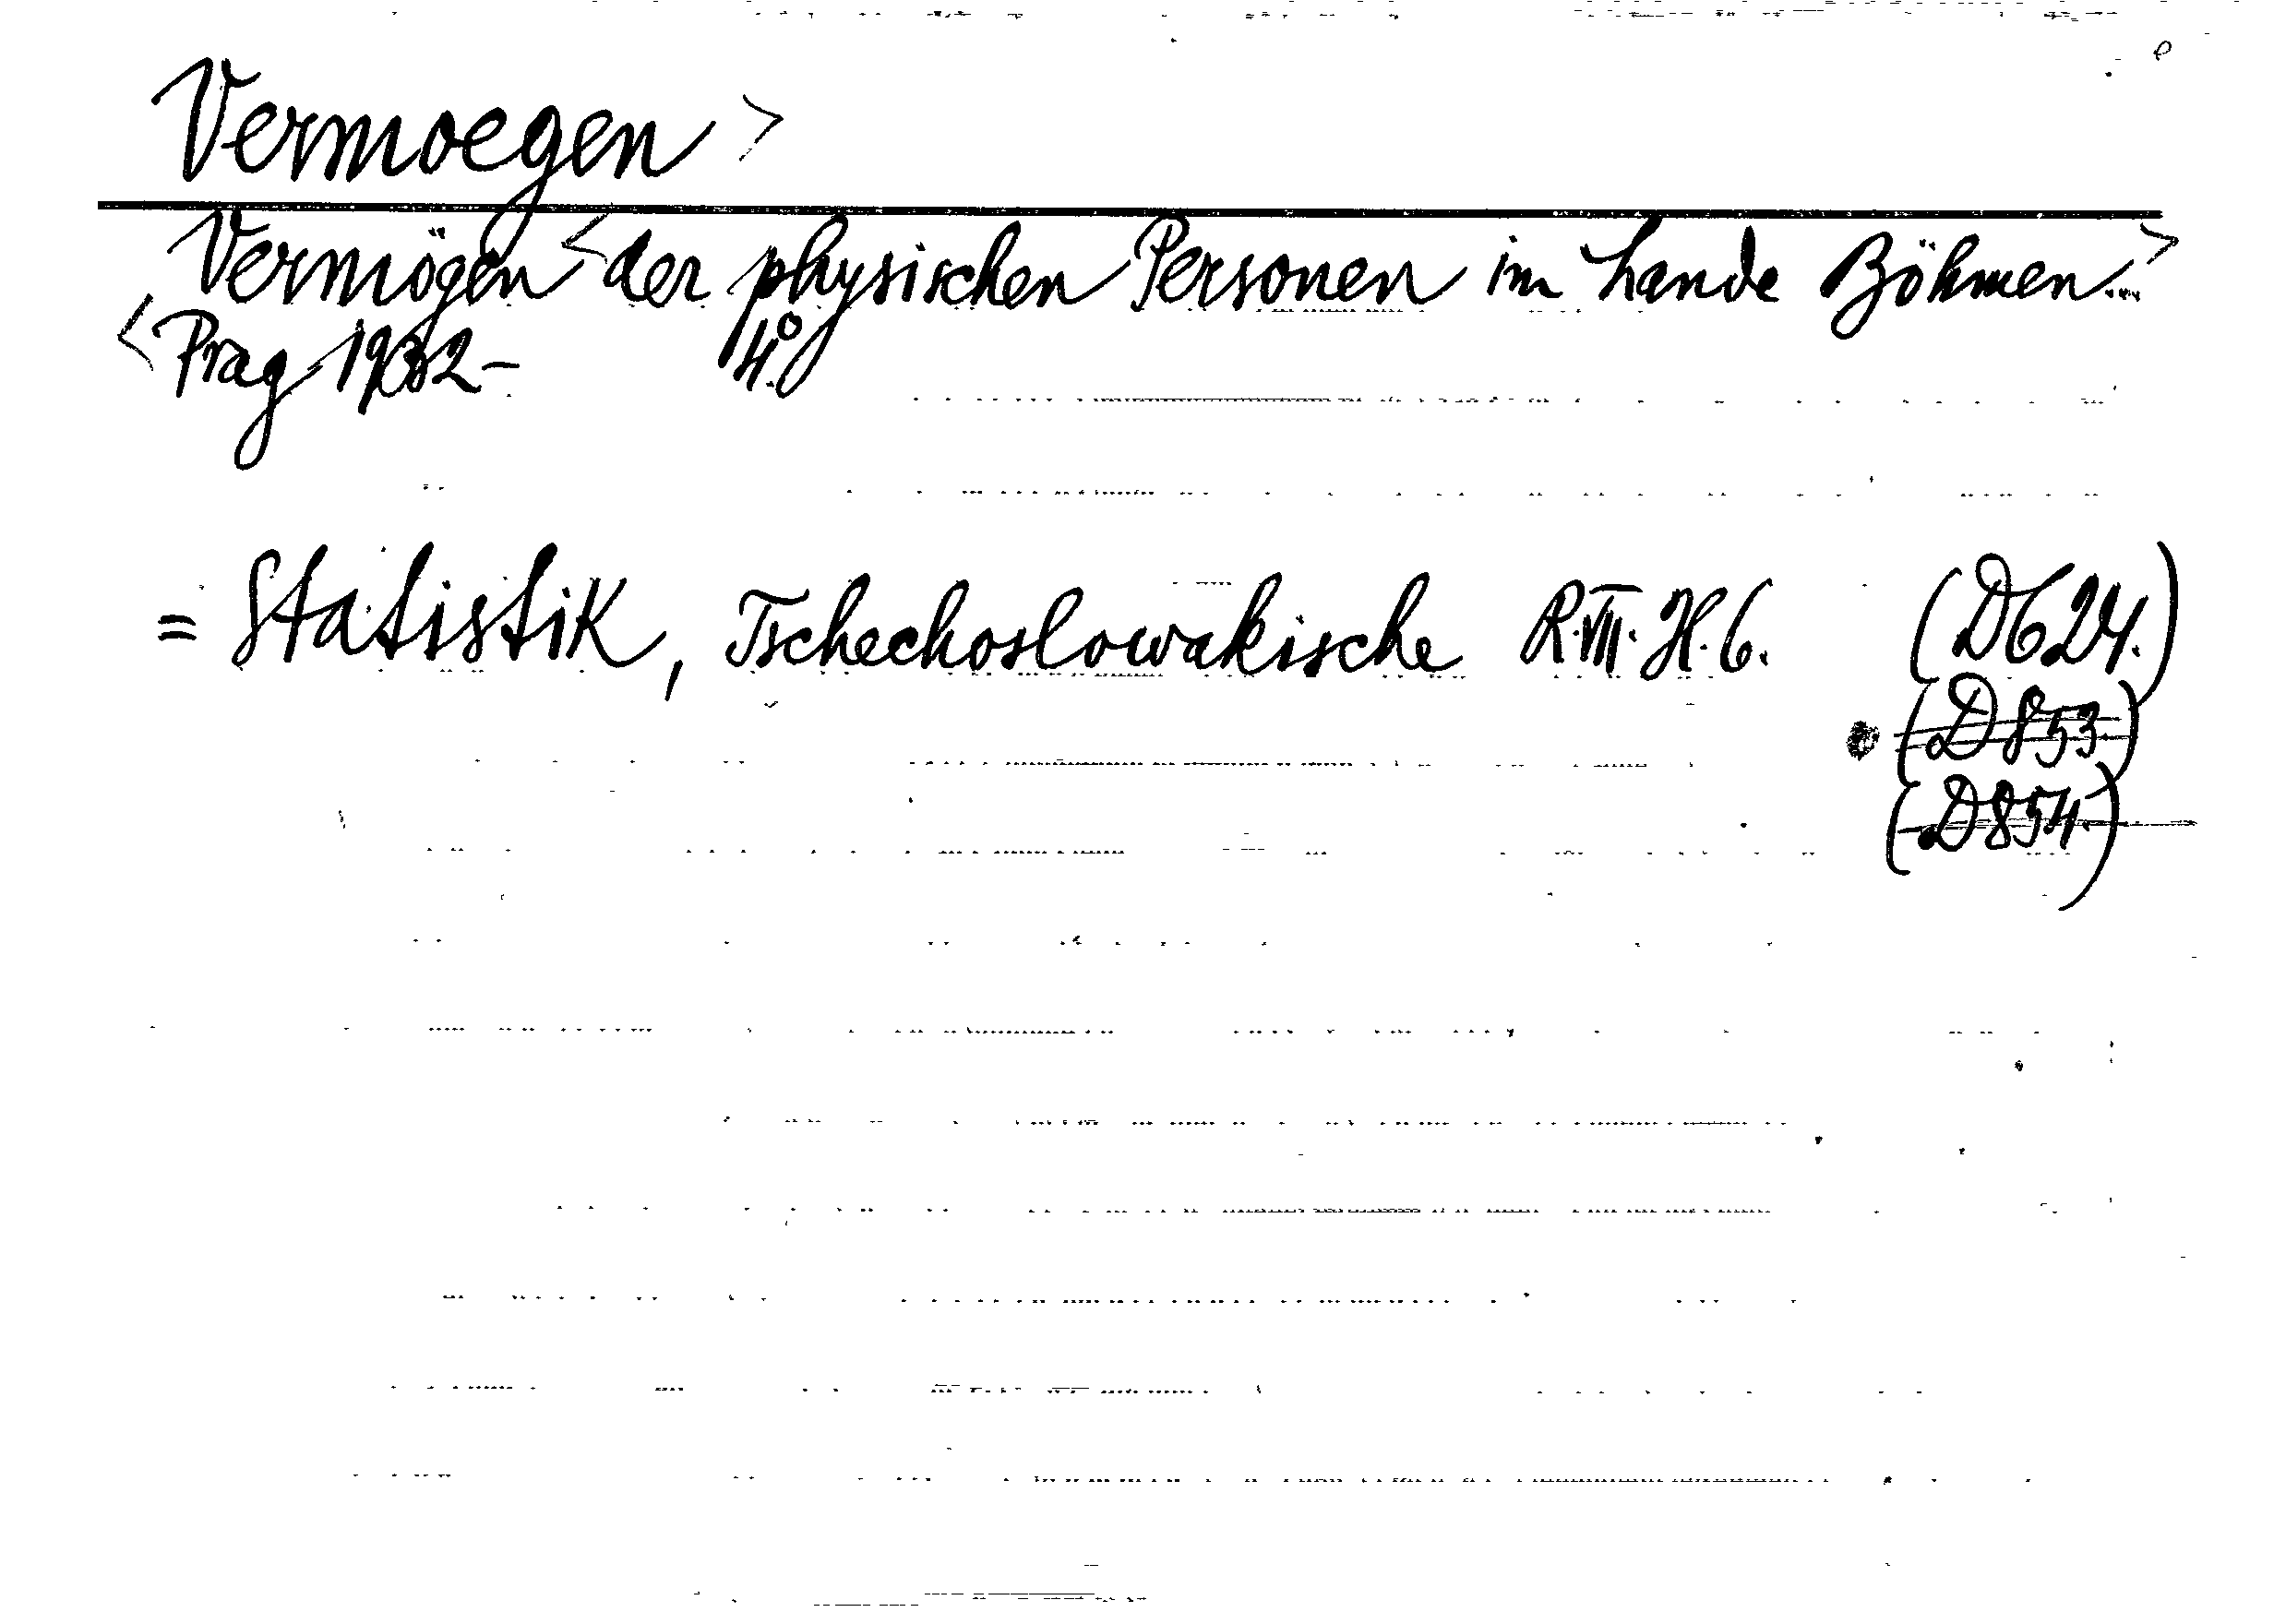 Vermoegen >
Vermögen < der physischen Personen im Lande Böhmen... >
< Prag 1932- 4°
= Statistik, Tschechoslowakische R.VIII. H.6. (D624.)
(D853.)
(D854.)